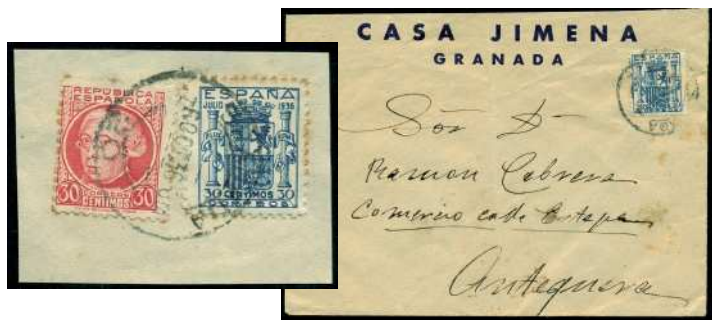 REPUBLICA
ESPAÑOLA
30 CORREOS 30
CENTIMOS
ESPAÑA
JULIO DE 1936
30 CENTIMOS 30
CORREOS
CASA JIMENA
GRANADA
Sör D
Ramon Cabrera
Comercio calle Estepa
Antequera